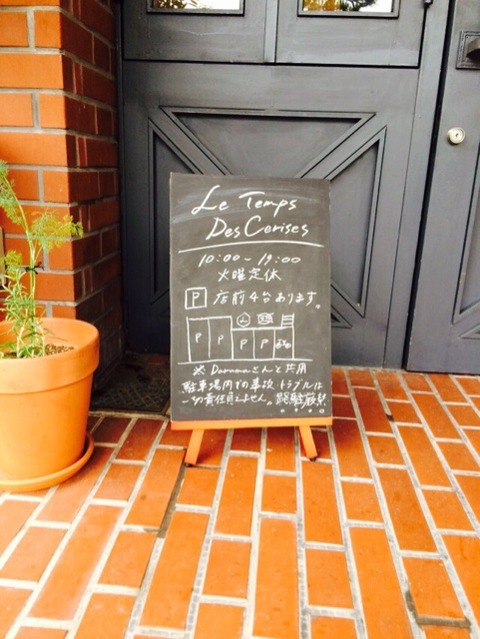 Le Temps
Des Cerises
10:00~19:00
火曜定休
P 店前4台あります。
P P P P
※ Darumaさんと共用
駐車場内での事故 トラブルは
一切責任負えません。路駐厳禁